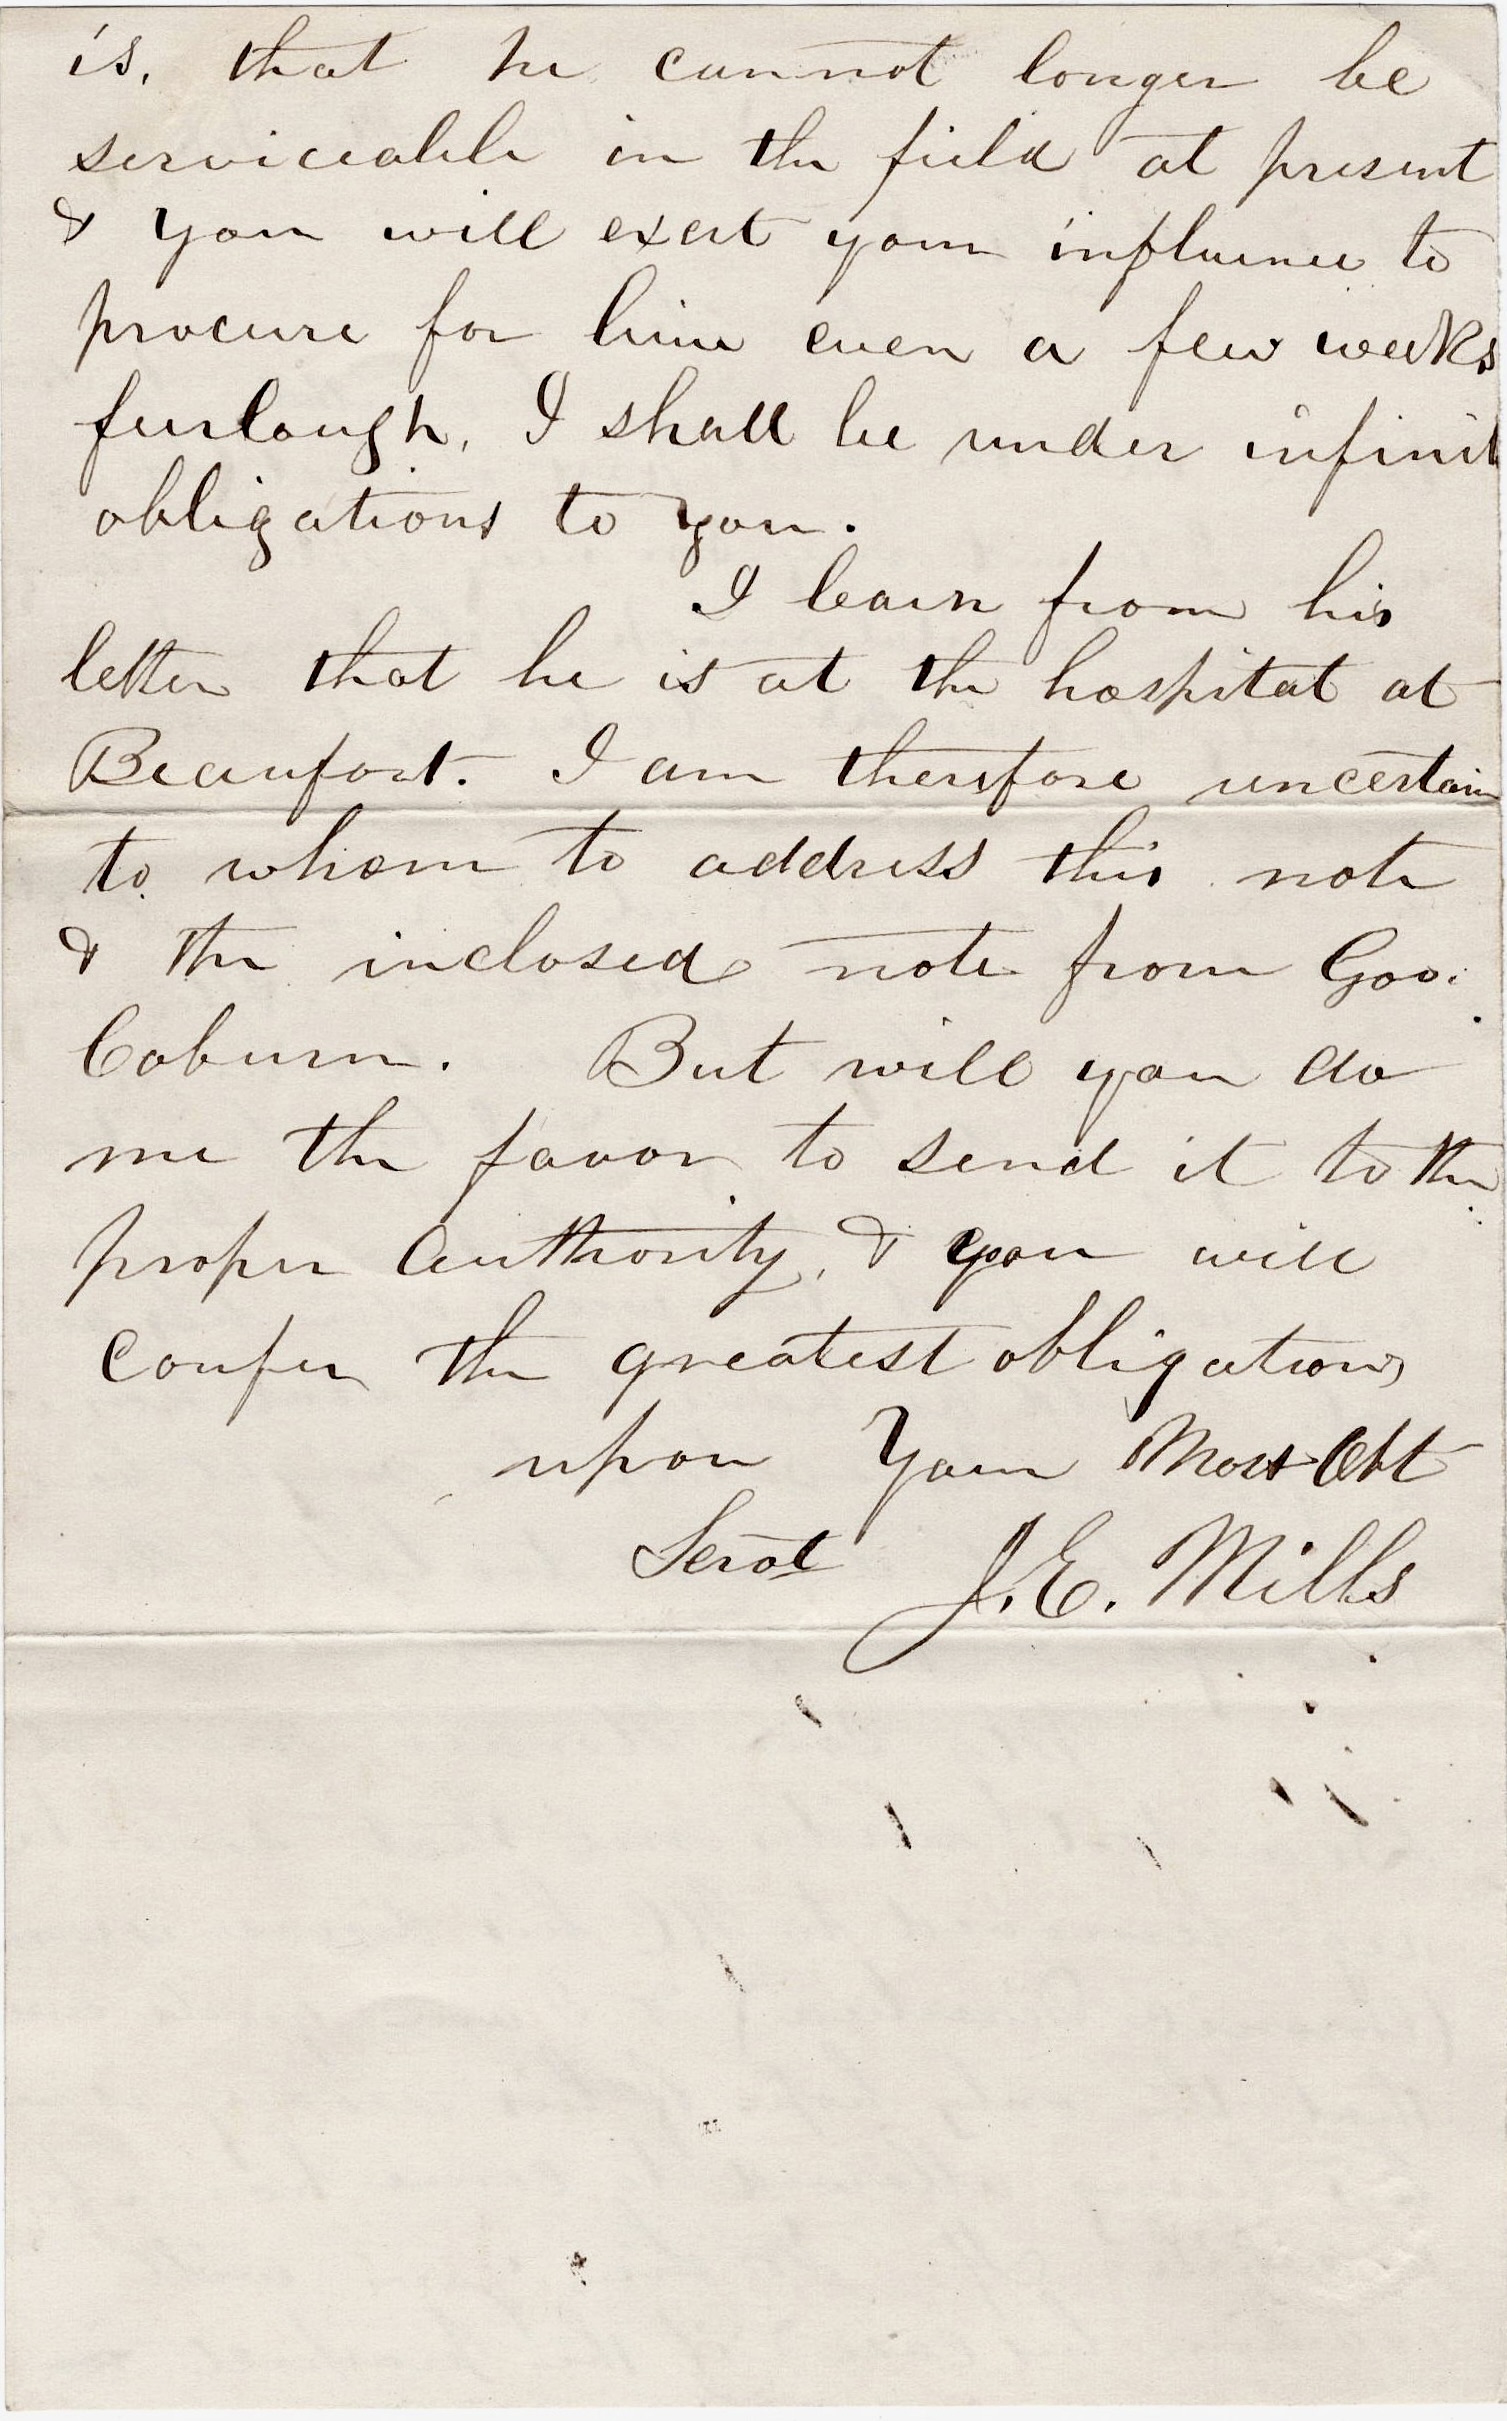 is, that he cannot longer be
serviceable in the field at present
& you will exert your influence to
procure for him even a few weeks
furlough, I shall be under infinit
obligations to you.
I learn from his
letter that he is at the hospital at
Beaufort. I am therefore uncertain
to whom to address this note
& the inclosed note from Gov.
Coburn. But will you do
me the favor to send it to the
proper authority, & you will
confer the greatest obligations
upon Your Most Obt
Servt J. E. Mills